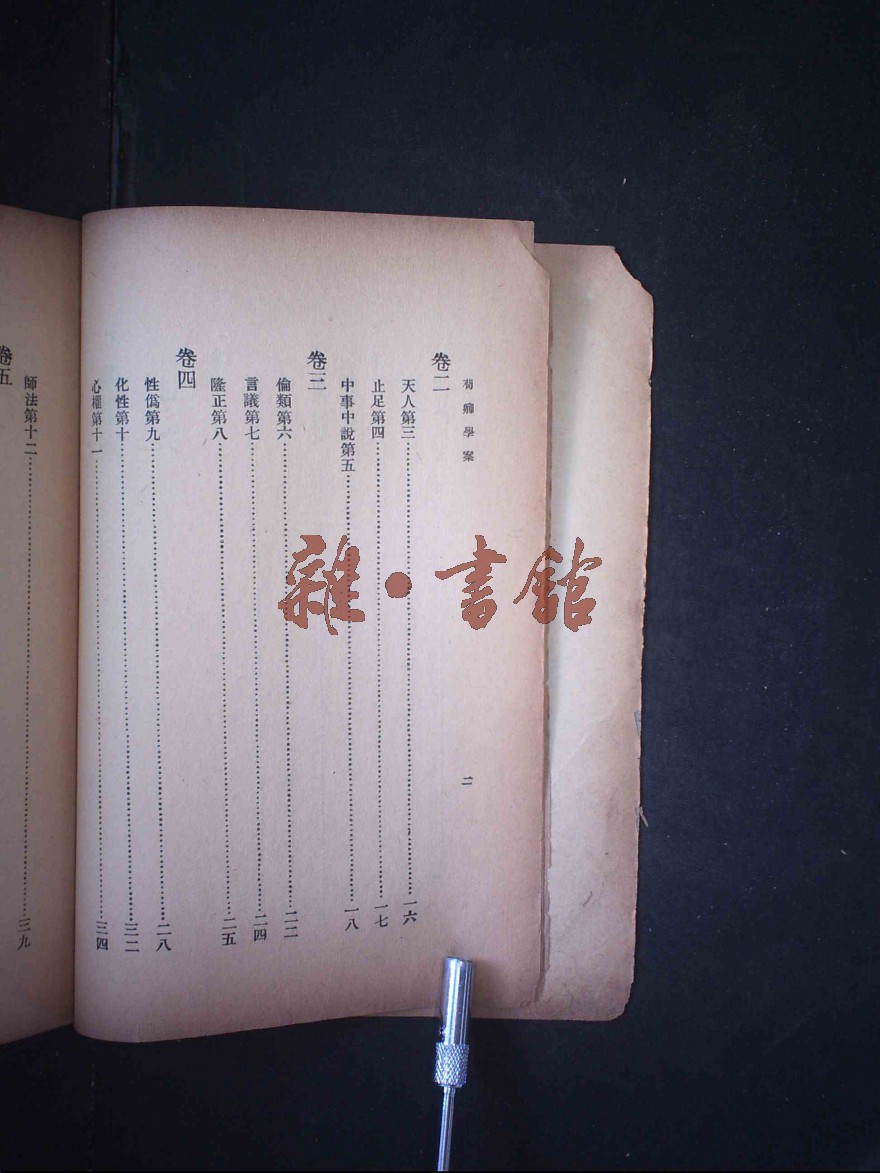 荀卿學案
二
卷二
天人第三……一六
止足第四……一七
中事中說第五……一八
卷三
倫類第六……二二
言議第七……二四
隆正第八……二五
卷四
性僞第九……二八
化性第十……三二
心權第十一……三四
卷五
師法第十二……三九
雜·書館